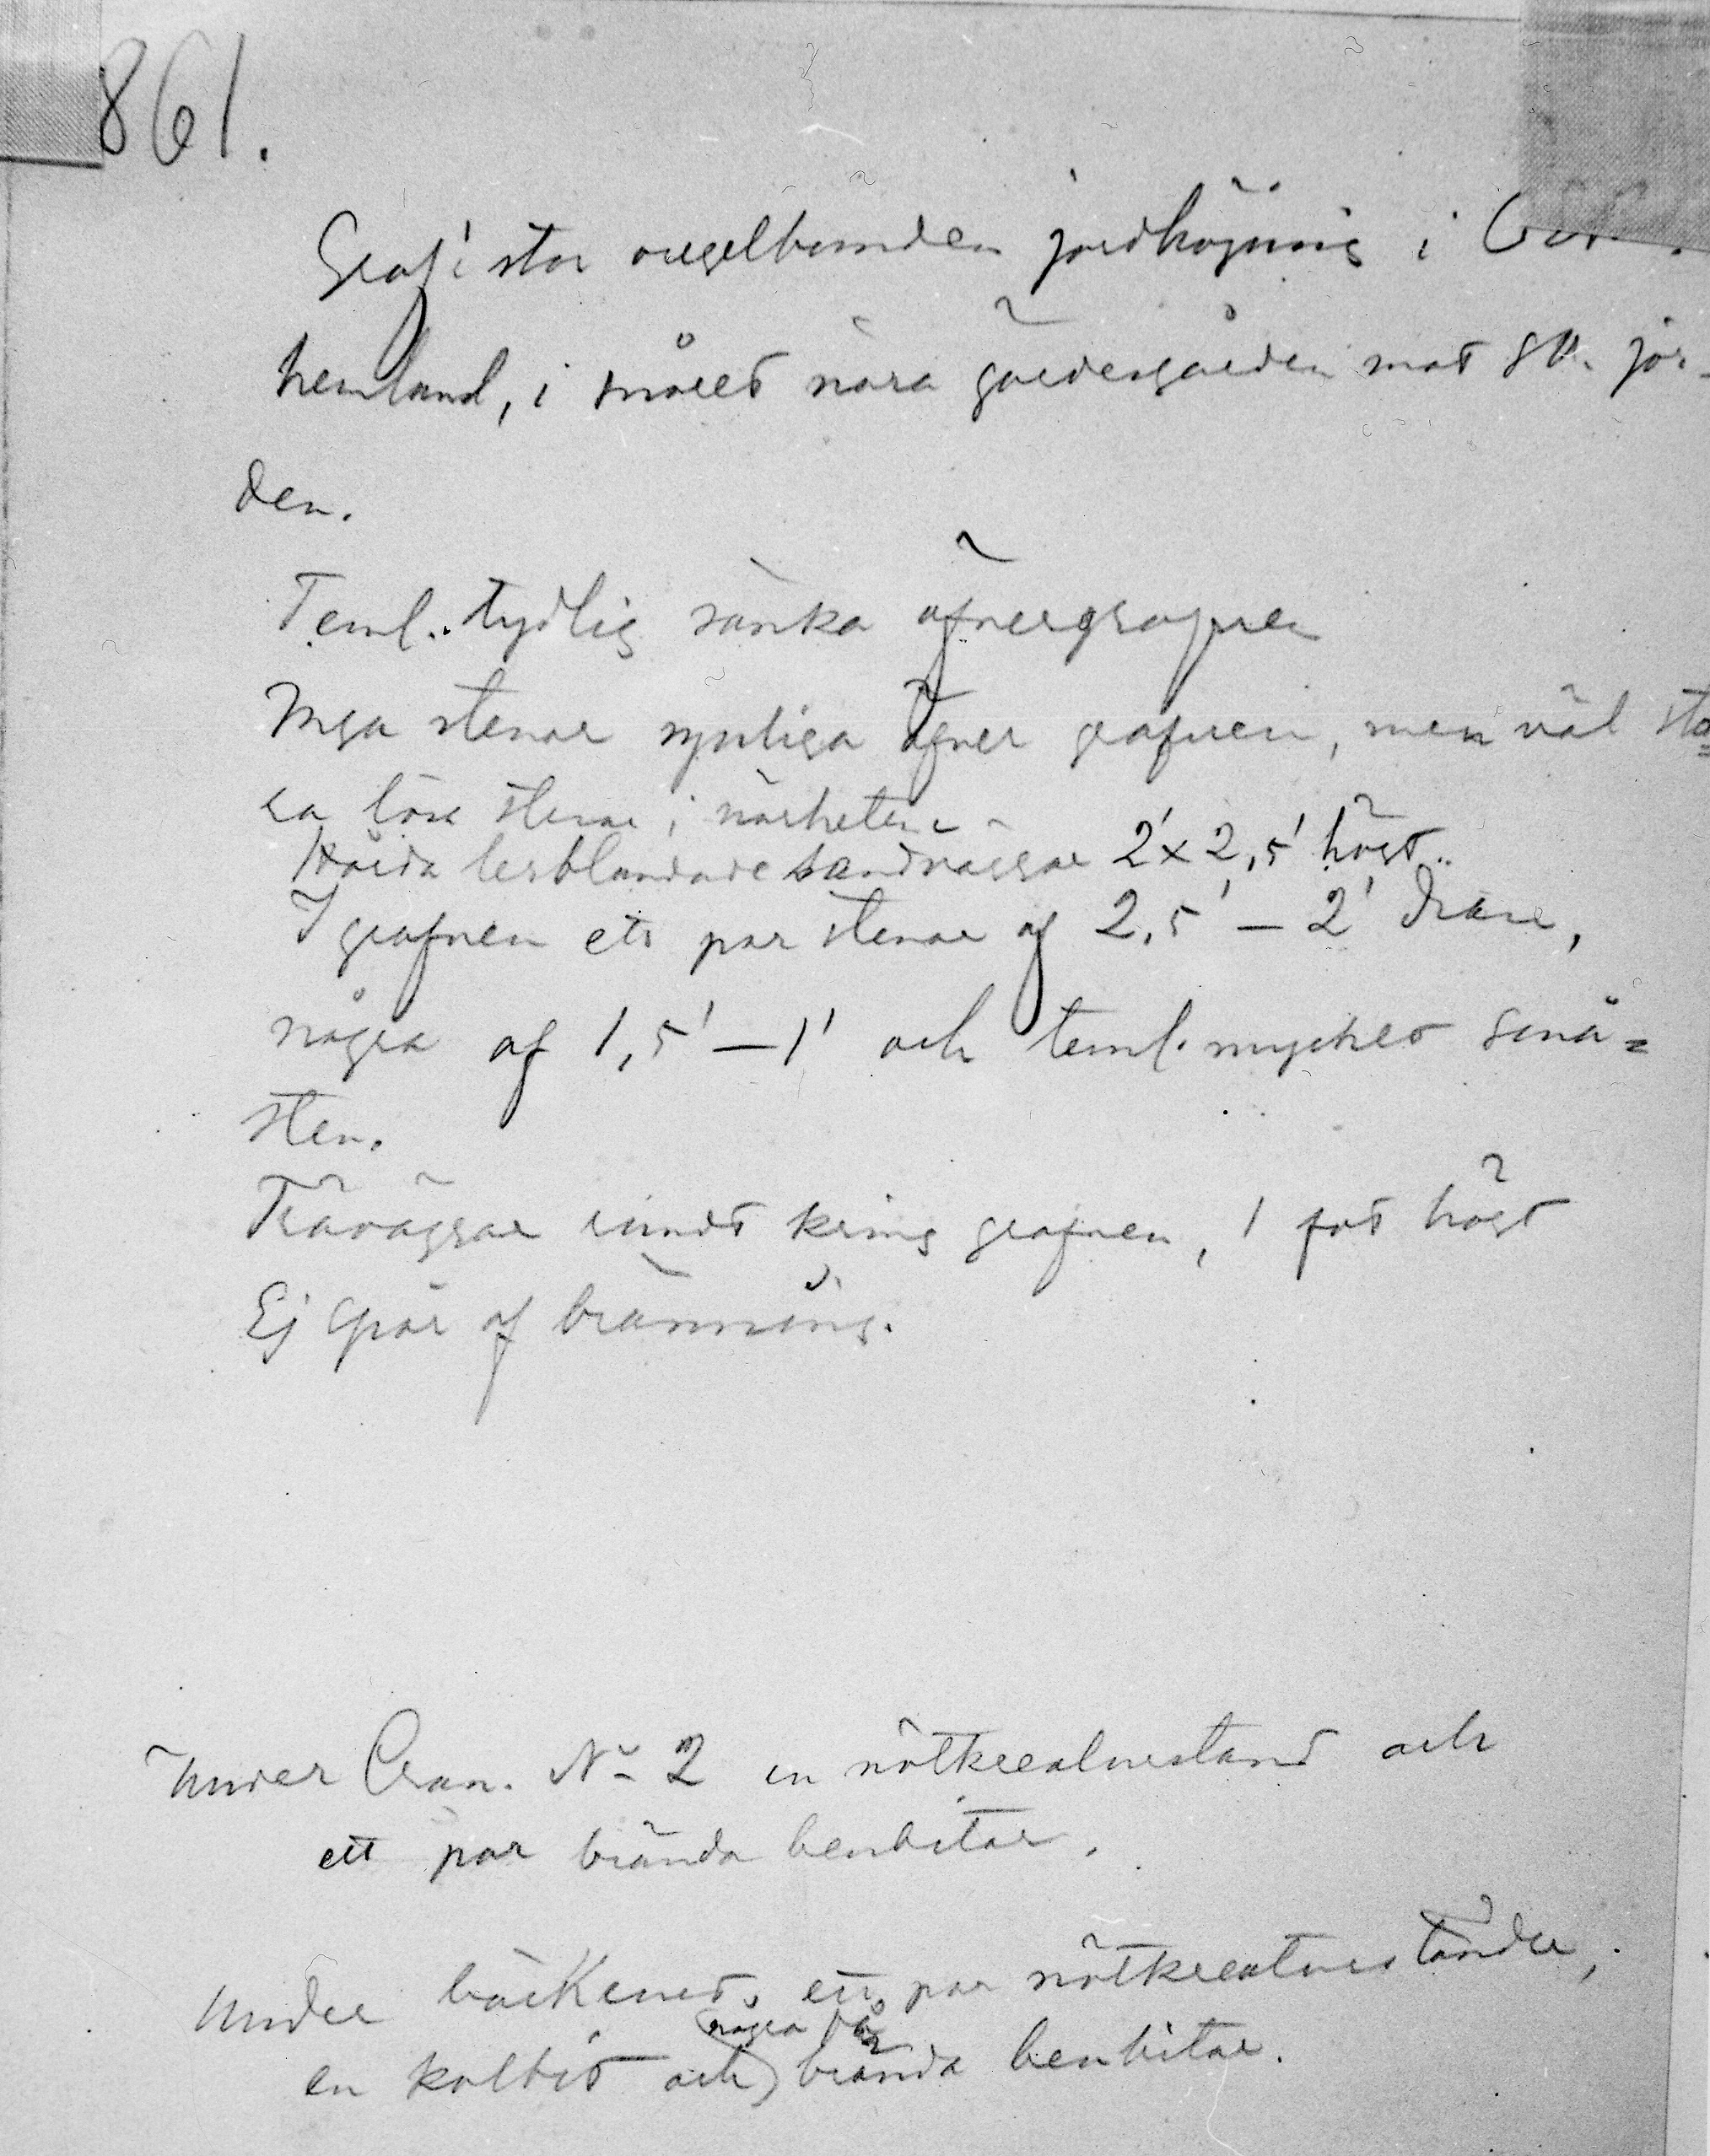 861.
Graf i stor oregelbunden jordhöjning i
hemland, i snåret nära gärdesgården mot St. jor-
den.
Teml. tydlig sänka öfver grafven
Inga stenar synliga öfver grafven, men väl sto=
ra lösa stenar i närheten.
Hårda lerblandade sandväggar 2' x 2,5' högt.
I grafven ett par stenar af 2,5' — 2' diam,
några af 1,5' — 1' och teml. mycket små=
sten.
Träväggar rundt kring grafven, 1 fot högt
Ej spår af bränning.
Under Cran. No 2 en nötkreaturstand och
ett par brända benbitar.
Under bäckenet, ett par nötkreaturständer,
några få
en kolbit och brända benbitar.